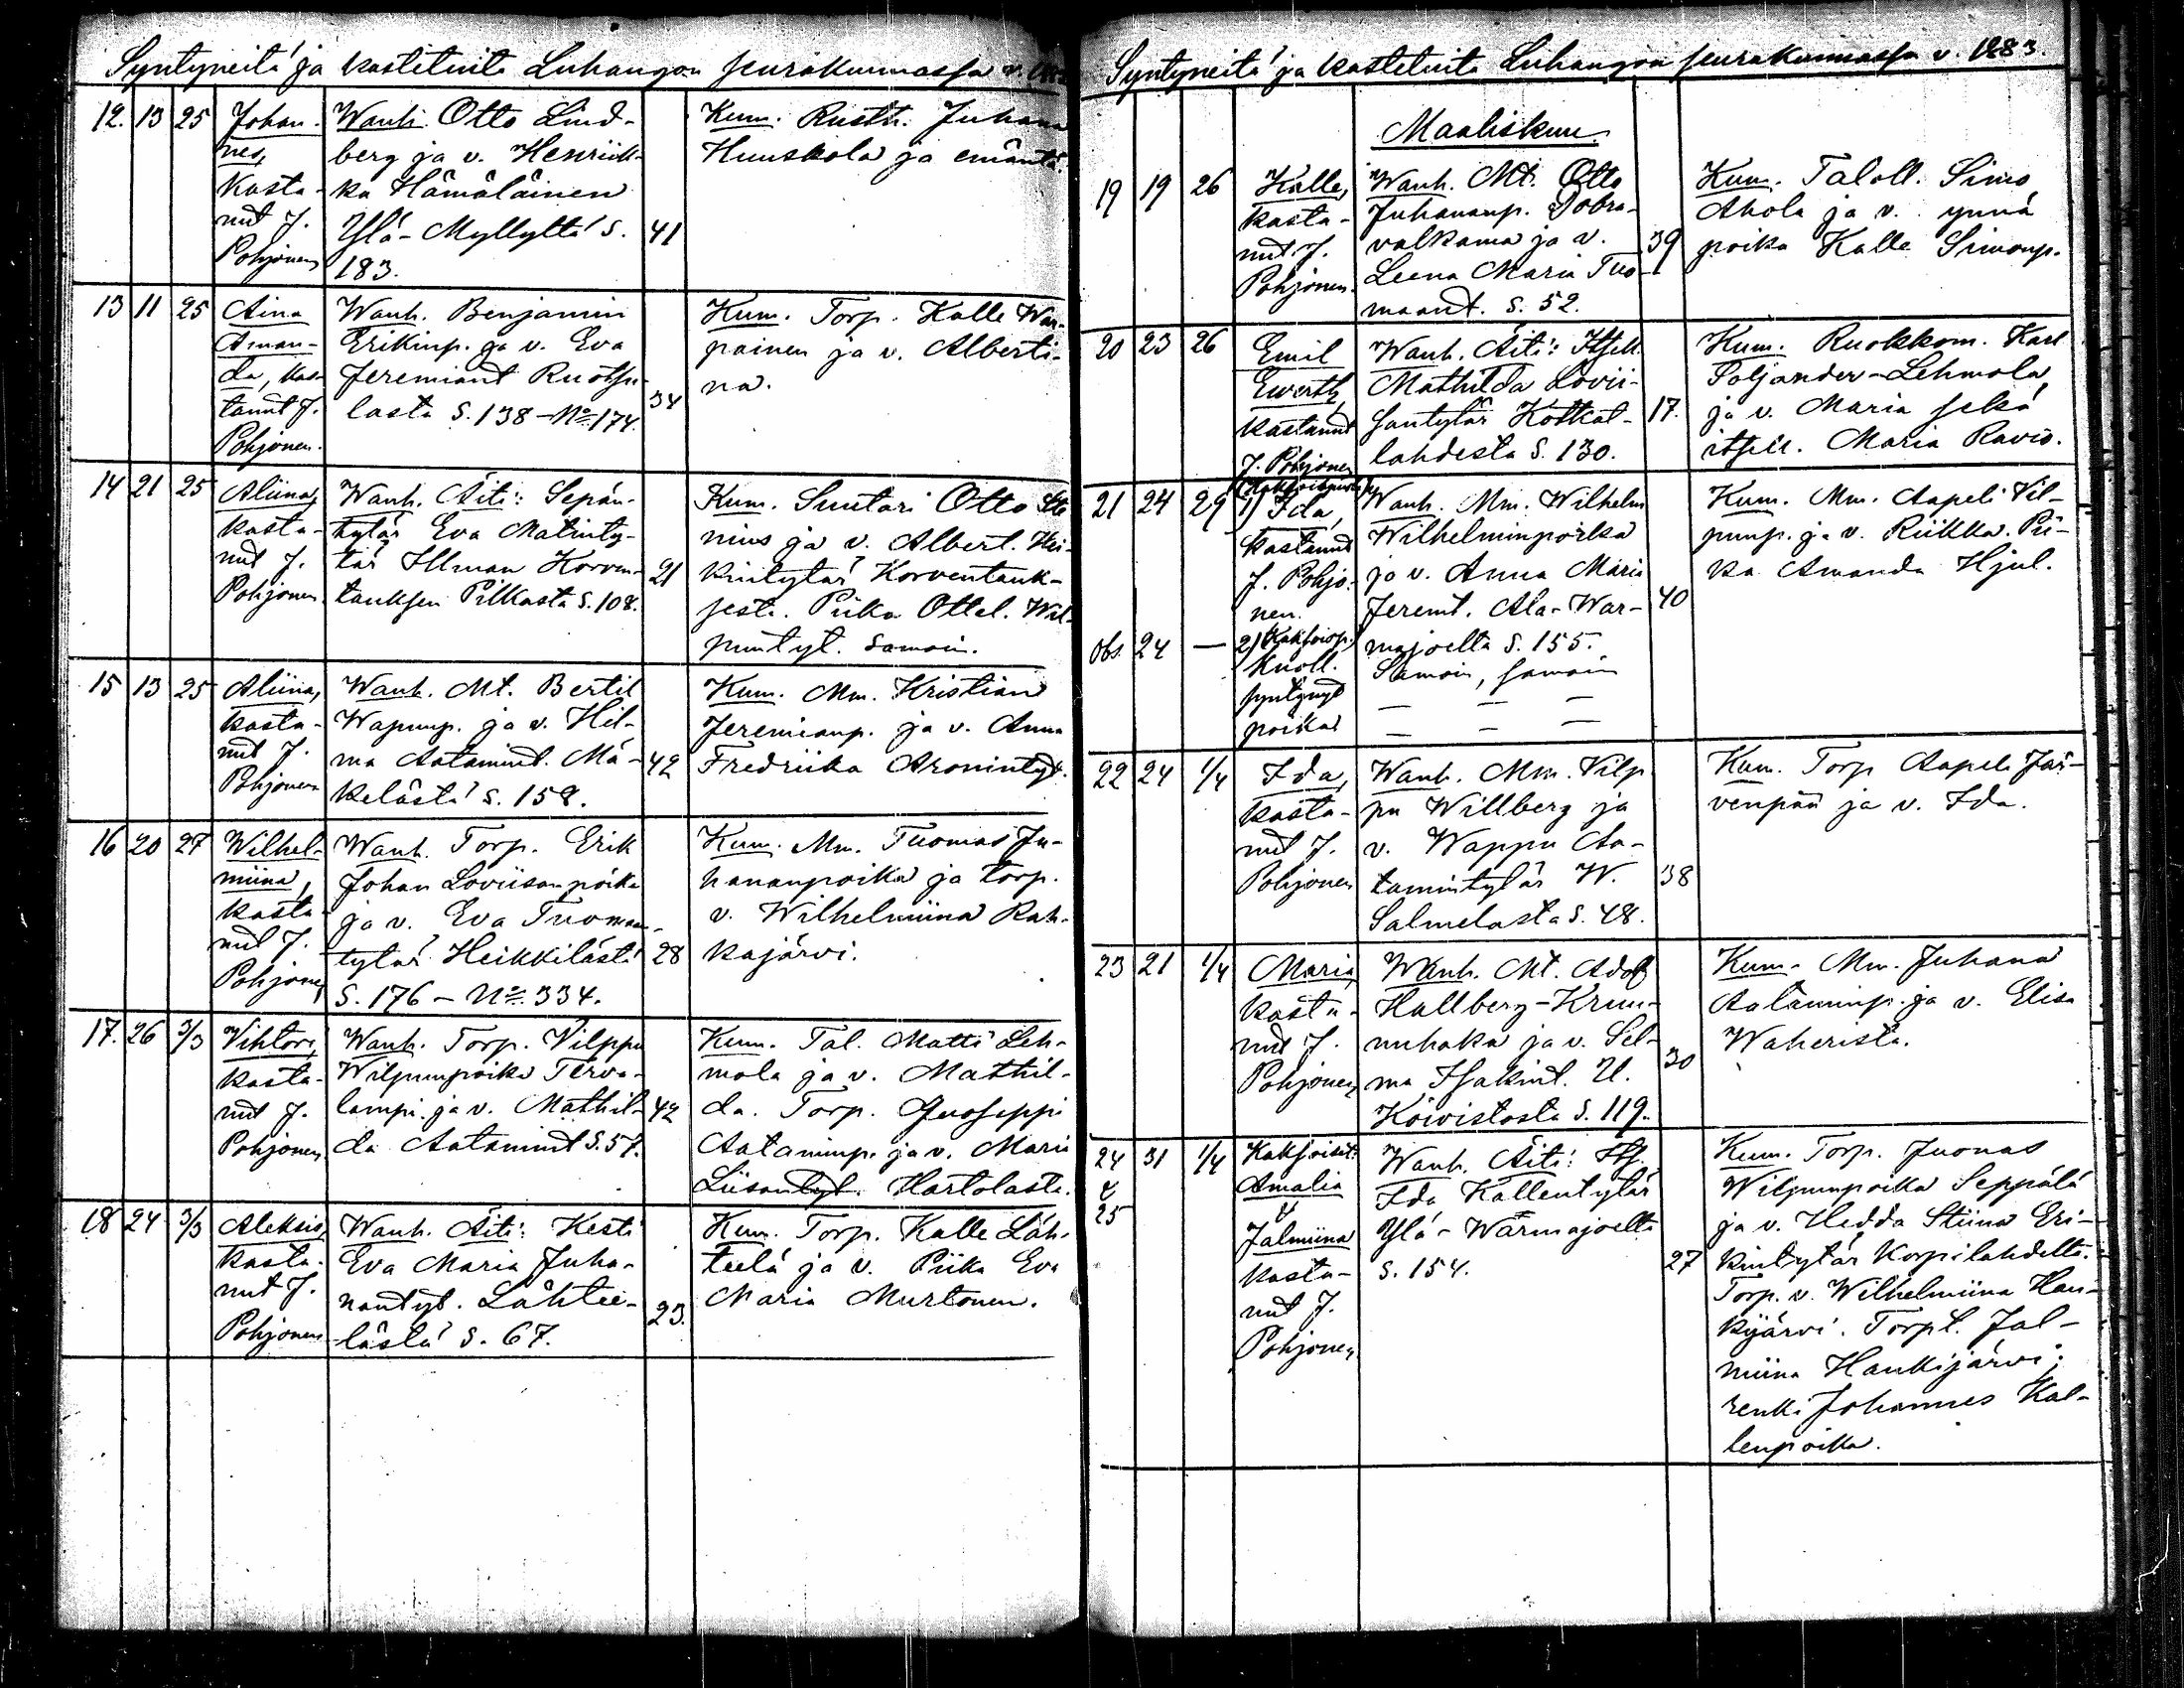 Syntyneitä ja kastetuita Luhangon seurakunnassa v.
12. 13 25 Johan-
nes,
kasta-
nut J.
Pohjonen
Wanh. Otto Lind-
berg ja v. Henriik-
ka Hämäläinen
Ylä-Myllyltä S. 41
183.
Kum. Rusth. Juhana
Huuskola ja emäntä.
13 11 25 Aina
Aman-
da, kas-
tanut J.
Pohjonen.
Wanh. Benjamin
Erikinp. ja v. Eva
Jeremiant Ruotsu-
lasta S. 138 - No 174. 34
Kum. Torp. Kalle War-
painen ja v. Alberti-
na.
14 21 25 Aliina,
kasta-
nut J.
Pohjonen
Wanh. Äiti: Sepän-
tytär Eva Matinty-
tär Illman Korven- 21
tauksen Pilkasta S. 108.
Kum. Suutari Otto Ste
nius ja v. Albert. Hei-
kintytär Korventauk-
sesta. Piika Ottel. Wil-
puntyt. samoin.
15 13 25 Aliina,
kasta-
nut J.
Pohjonen
Wanh. Mt. Bertil
Wapunp. ja v. Hil-
ma Aatamint. Mä- 42
kelästä S. 158.
Kum. Mm. Kristian
Jeremianp. ja v. Anna
Fredriika Aronintyt.
16 20 27 Wilhel-
miina,
kasta-
nut J.
Pohjonen
Wanh. Torp. Erik
Johan Loviisanpoika
ja v. Eva Tuoman-
tytär Heikkilästä 28
S. 176 - No 334.
Kum. Mm. Tuomas Ju-
hananpoika ja torp.
v. Wilhelmiina Rah-
kajärvi.
17. 26 3/3 Vihtori,
kasta-
nut J.
Pohjonen
Wanh. Torp. Vilppu
Wilpunpoika Terva-
lampi ja v. Mathil- 42
da Aatamint S. 57.
Kum. Tal. Matti Leh-
mola ja v. Mathil-
da. Torp. Juoseppi
Aataminp. ja v. Maria
Liisantyt. Hartolasta.
18 24 3/3 Aleksis,
kasta-
nut J.
Pohjonen
Wanh. Äiti: Kesti
Eva Maria Juha-
nantyt. Lähtee- 23.
lästä S. 67.
Kum. Torp. Kalle Läh-
teelä ja v. Piika Eva
Maria Murtonen.
Syntyneitä ja kastetuita Luhangon seurakunnassa v. 1883.
Maaliskuu.
19 19 26 Kalle,
kasta-
nut J.
Pohjonen.
Wanh. Mt. Otto
Juhananp. Dobra-
valkama ja v. 39
Leena Maria Tuo-
maant. S. 52.
Kum. Taloll. Simo
Ahola ja v. ynnä
poika Kalle Simonp.
20 23 26 Emil
Ewerth,
kastanut
J. Pohjonen
Wanh. Äiti: Itsell.
Mathilda Lovii-
santytär Kotkat- 17.
lahdesta S. 130.
Kum. Ruokkom. Karl
Poljander-Lehmola,
ja v. Maria sekä
itsell. Maria Ravio.
21 24 29 1) Ida,
kastanut
J. Pohjo-
nen.
Wanh. Mm. Wilhelm
Wilhelminpoika
ja v. Anna Maria
Jeremt. Ala-War- 40
majoelta S. 155.
Kum. Mm. Aapeli Vil-
punp. ja v. Riikka. Pii-
ka Amanda Hjul.
obs. 24 — 2) Kaksoisp.
kuoll.
syntynyt
poika
Samoin, samoin
— — —
— — —
22 24 1/4 Ida,
kasta-
nut J.
Pohjonen
Wanh. Mm. Vilp
pu Willberg ja
v. Wappu Aa-
tamintytär W. 38
Salmelasta S. 48.
Kum. Torp Aapeli Jär-
venpää ja v. Ida.
23 21 1/4 Maria,
kasta-
nut J.
Pohjonen
Wanh. Mt. Adolf
Hallberg-Kruu-
nuhaka ja v. Sel-
ma Isakint. U. 30
Koivistosta S. 119.
Kum. Mm. Juhana
Aataminp. ja v. Elisa
Waherista.
24 31 1/4 Kaksoiset:
&
25
Amalia
&
Jalmiina
kasta-
nut J.
Pohjonen
Wanh. Äiti: Its.
Ida Kallentytär
Ylä-Warmajoelta
S. 154. 27
Kum. Torp. Juonas
Wilpunpoika Seppälä
ja v. Hedda Stiina Eri-
kintytär Korpilahdelta.
Torp. v. Wilhelmiina Hau-
kijärvi. Torpt. Jal-
miina Haukijärvi;
renki Johannes Kal-
lenpoika.